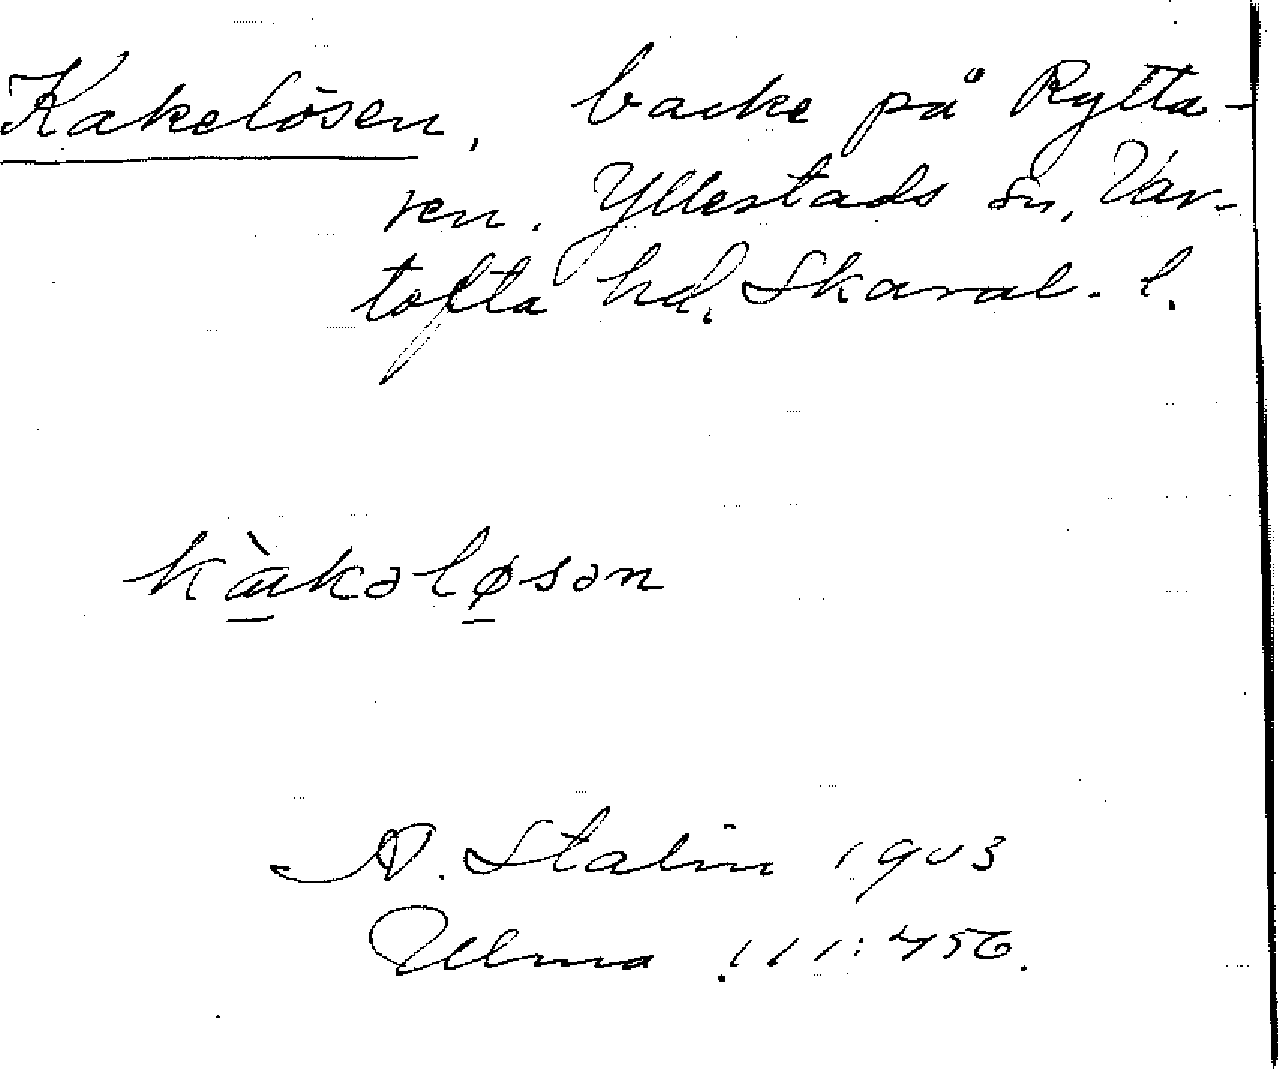 Kakelösen, backe på Rytta-
ren. Yllestads sn, Var-
tofta hd, Skarab. l.
kàkəløsən
A. Stalin 1903
Ulma 111:456.